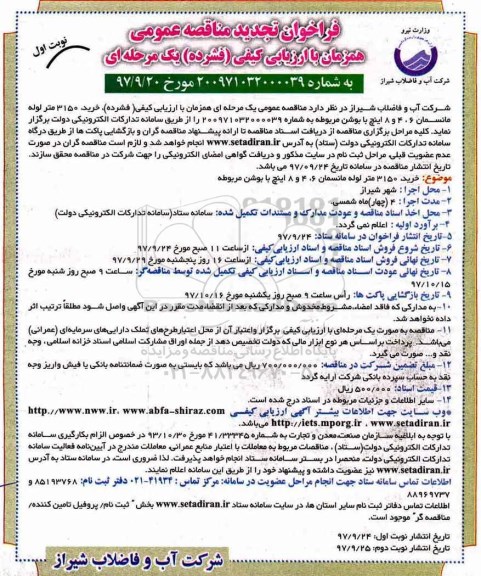 وزارت نیرو
شرکت آب و فاضلاب شیراز
نوبت اول
فراخوان تجدید مناقصه عمومی
همزمان با ارزیابی کیفی (فشرده) یک مرحله ای
به شماره ۲۰۰۹۷۱۰۳۲۰۰۰۰۳۹ مورخ ۹۷/۹/۲۰
شرکت آب و فاضلاب شیراز در نظر دارد مناقصه عمومی یک مرحله ای همزمان با ارزیابی کیفی( فشرده)، خرید، ۳۱۵۰ متر لوله
مانیسمان ۶، ۴ و ۸ اینچ با بوشن مربوطه به شماره ۲۰۰۹۷۱۰۳۲۰۰۰۰۳۹ را از طریق سامانه تدارکات الکترونیکی دولت برگزار
نماید. کلیه مراحل برگزاری مناقصه از دریافت اسناد مناقصه تا ارائه پیشنهاد مناقصه گران و بازگشایی پاکت ها از طریق درگاه
سامانه تدارکات الکترونیکی دولت (ستاد) به آدرس www.setadiran.ir انجام خواهد شد و لازم است مناقصه گران در صورت
عدم عضویت قبلی، مراحل ثبت نام در سایت مذکور و دریافت گواهی امضای الکترونیکی را جهت شرکت در مناقصه محقق سازند.
تاریخ انتشار مناقصه در سامانه در تاریخ ۹۷/۰۹/۲۴ می باشد.
موضوع: خرید، ۳۱۵۰ متر لوله مانیسمان ۶، ۴ و ۸ اینچ با بوشن مربوطه
۱- محل اجرا : شهر شیراز
۲- مدت اجرا : ۴ (چهار)ماه شمسی.
۳- محل اخذ اسناد مناقصه و عودت مدارک و مستندات تکمیل شده: سامانه ستاد(سامانه تدارکات الکترونیکی دولت)
۴- برآورد اولیه : اعلام نمی گردد.
۵-تاریخ انتشار فراخوان در سامانه ستاد: ۹۷/۹/۲۴
۶- تاریخ شروع فروش اسناد مناقصه و اسناد ارزیابی کیفی: ازساعت ۱۱ صبح مورخ ۹۷/۹/۲۴
۷- تاریخ نهائی فروش اسناد مناقصه و اسناد ارزیابی کیفی: ازساعت ۱۶ روز پنجشنبه مورخ ۹۷/۹/۲۹
۸- تاریخ نهائی عودت اسناد مناقصه و اسناد ارزیابی کیفی تکمیل شده توسط مناقصه گر: ساعت ۹ صبح روز شنبه مورخ
۹۷/۱۰/۱۵
۹- تاریخ بازگشایی پاکت ها: رأس ساعت ۹ صبح روز یکشنبه مورخ ۹۷/۱۰/۱۶
۱۰- به مدارکی که فاقد امضاء، مشروط، مخدوش و مدارکی که بعد از انقضاء مدت مقرر در این آگهی واصل شود مطلقاً ترتیب اثر
داده نخواهد شد.
۱۱- مناقصه به صورت یک مرحله‌ای با ارزیابی کیفی برگزار واعتبار آن از محل اعتبارطرح‌های تملک دارایی‌های سرمایه‌ای (عمرانی)
می‌باشد. پرداخت براساس هر نوع ابزار مالی که دولت تخصیص دهد از جمله اوراق مشارکت اسلامی اسناد خزانه اسلامی، وجه
نقد و... صورت می گیرد.
۱۲- مبلغ تضمین شرکت در مناقصه: ۷۰۰/۰۰۰/۰۰۰ ریال می باشد که بایستی به صورت ضمانتنامه بانکی یا فیش واریز وجه
نقد به حساب سپرده بانکی شرکت ارایه گردد
۱۳-قیمت اسناد: ۵۰۰/۰۰۰ ریال
۱۴- سایر اطلاعات و جزئیات مربوطه در اسناد درج شده است.
وب سایت جهت اطلاعات بیشتر آگهی ارزیابی کیفی http://www.nww.ir، www.abfa-shiraz.com
http://iets.mporg.ir ، www.setadiran.ir می‌باشد.
با توجه به ابلاغیه سازمان صنعت،معدن و تجارت به شماره ۴۱/۳۳۳۴۵ مورخ ۹۳/۱۰/۳۰ در خصوص الزام بکارگیری سامانه
تدارکات الکترونیکی دولت(ستاد) ، مناقصات مربوط به معاملات با اعتبار منابع عمرانی، معاملات مندرج در آیین‌نامه فعالیت سامانه
تدارکات الکترونیکی دولت، منحصرا در بستر سامانه ستاد انجام خواهد پذیرفت. لذا ضروری است، در سامانه ستاد به آدرس
www.setadiran.ir نیز عضویت داشته و پیشنهاد خود را از طریق این سامانه اعلام نمایند.
اطلاعات تماس سامانه ستاد جهت انجام مراحل عضویت در سامانه: مرکز تماس : ۴۱۹۳۴-۰۲۱ دفتر ثبت نام: ۸۵۱۹۳۷۶۸ و
۸۸۹۶۹۷۳۷
اطلاعات تماس دفاتر ثبت نام سایر استان ها، در سایت سامانه ستاد www.setadiran.ir بخش " ثبت نام/ پروفیل تامین کننده/
مناقصه گر" موجود است.
تاریخ انتشار نوبت اول: ۹۷/۹/۲۴
تاریخ انتشار نوبت دوم: ۹۷/۹/۲۵
شرکت آب و فاضلاب شیراز